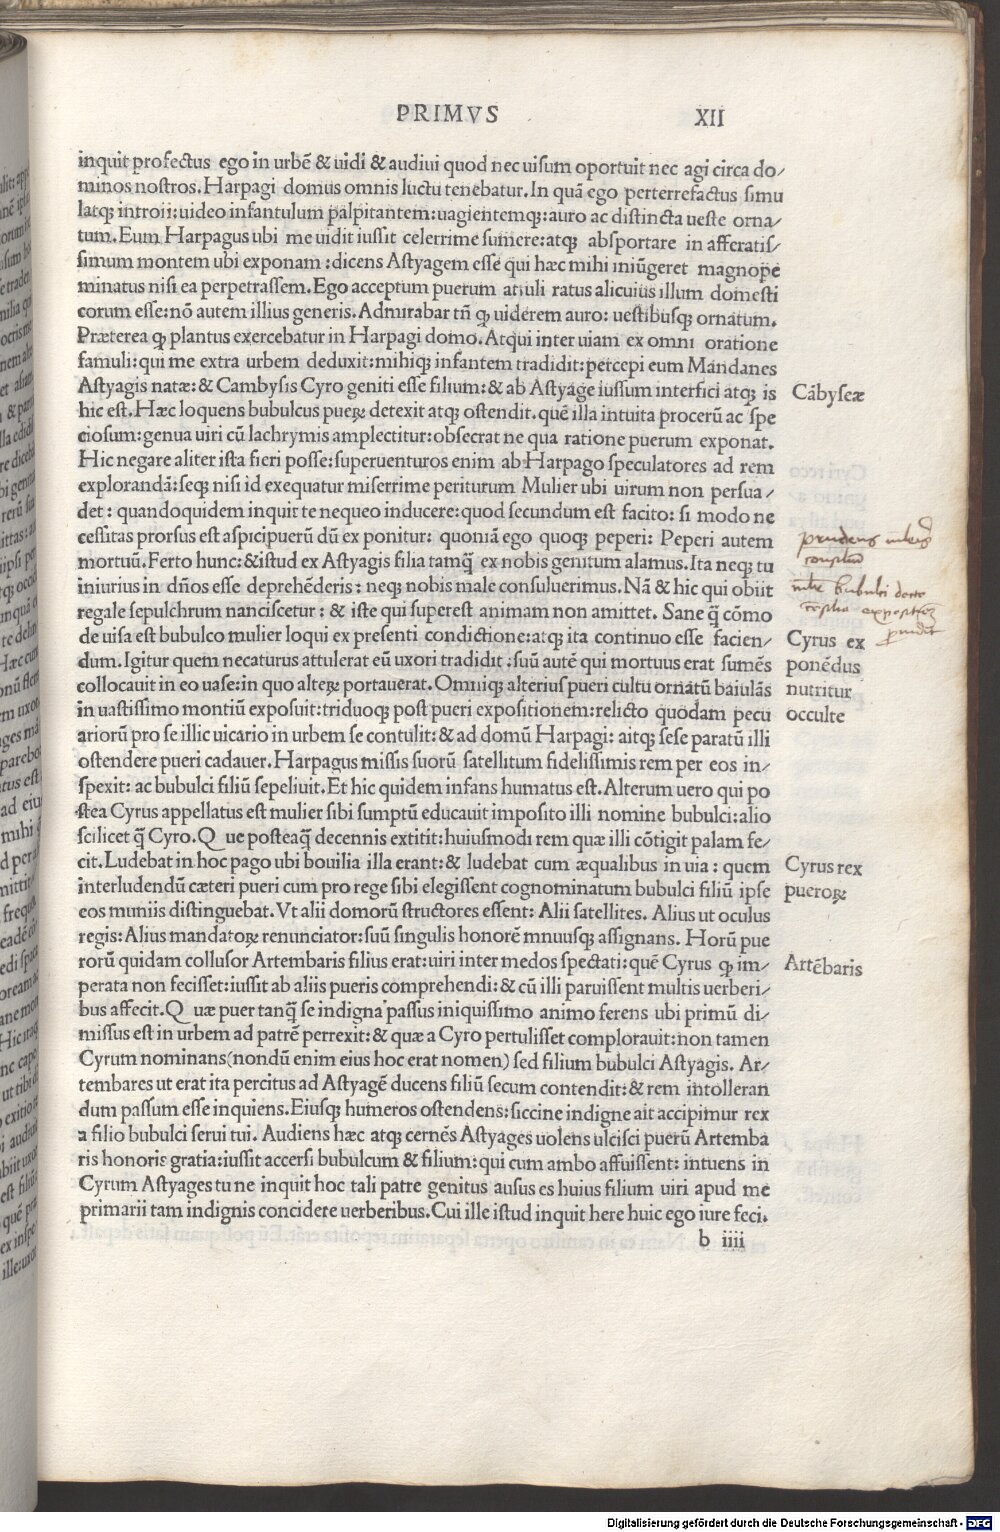 PRIMVS XII
inquit profectus ego in urbē & uidi & audiui quod nec uisum oportuit nec agi circa do/
minos nostros. Harpagi domus omnis luctu tenebatur. In quā ego perterrefactus simu
latqꝫ introii: uideo infantulum palpitantem: uagientemqꝫ: auro ac distincta ueste orna/
tum. Eum Harpagus ubi me uidit iussit celerrime sumere: atqꝫ absportare in afferatis/
simum montem ubi exponam: dicens Astyagem esse qui hæc mihi iniūgeret magnopē
minatus nisi ea perpetrassem. Ego acceptum puerum attuli ratus alicuius illum domesti
corum esse: nō autem illius generis. Admirabar tñ ꝙ uiderem auro: uestibusqꝫ ornatum.
Præterea ꝙ plantus exercebatur in Harpagi domo. Atqui inter uiam ex omni oratione
famuli: qui me extra urbem deduxit: mihiqꝫ infantem tradidit: percepi eum Mandanes
Astyagis natæ: & Cambysis Cyro geniti esse filium: & ab Astyage iussum interfici atqꝫ is
Cābyseæ
hic est. Hæc loquens bubulcus pueꝝ detexit atqꝫ ostendit. quē illa intuita procerū ac spe
ciosum: genua uiri cū lachrymis amplectitur: obsecrat ne qua ratione puerum exponat.
Hic negare aliter ista fieri posse: superuenturos enim ab Harpago speculatores ad rem
explorandā: seqꝫ nisi id exequatur miserrime periturum Mulier ubi uirum non persua/
det: quandoquidem inquit te nequeo inducere: quod secundum est facito: si modo ne
cessitas prorsus est aspicipuerū dū ex ponitur: quoniā ego quoqꝫ peperi: Peperi autem
prudens
mortuū. Ferto hunc: & istud ex Astyagis filia tamq̄ ex nobis genitum alamus. Ita neqꝫ tu
iniurius in dños esse deprehēderis: neqꝫ nobis male consuluerimus. Nā & hic qui obiit
bubulci
regale sepulchrum nanciscetur: & iste qui superest animam non amittet. Sane q̄ cōmo
de uisa est bubulco mulier loqui ex presenti condictione: atqꝫ ita continuo esse facien/
Cyrus ex
dum. Igitur quem necaturus attulerat eū uxori tradidit: suū autē qui mortuus erat sumēs
ponēdus
collocauit in eo uase: in quo alteꝝ portauerat. Omniqꝫ alterius pueri cultu ornatū baiulās
nutritur
in uastissimo montiū exposuit: triduoqꝫ post pueri expositionem: relicto quodam pecu
occulte
ariorū pro se illic uicario in urbem se contulit: & ad domū Harpagi: aitqꝫ sese paratū illi
ostendere pueri cadauer. Harpagus missis suorū satellitum fidelissimis rem per eos in/
spexit: ac bubulci filiū sepeliuit. Et hic quidem infans humatus est. Alterum uero qui po
stea Cyrus appellatus est mulier sibi sumptū educauit imposito illi nomine bubulci: alio
scilicet q̄ Cyro. Q ue posteaq̄ decennis extitit: huiusmodi rem quæ illi cōtigit palam fe/
cit. Ludebat in hoc pago ubi bouilia illa erant: & ludebat cum æqualibus in uia: quem
Cyrus rex
interludendū cæteri pueri cum pro rege sibi elegissent cognominatum bubulci filiū ipse
pueroꝝ
eos muniis distinguebat. Vt alii domorū structores essent: Alii satellites. Alius ut oculus
regis: Alius mandatoꝝ renunciator: suū singulis honorē mnuusqꝫ assignans. Horū pue
rorū quidam collusor Artembaris filius erat: uiri inter medos spectati: quē Cyrus ꝙ im/
Artēbaris
perata non fecisset: iussit ab aliis pueris comprehendi: & cū illi paruissent multis uerberi/
bus affecit. Q uæ puer tanq̄ se indigna passus iniquissimo animo ferens ubi primū di/
missus est in urbem ad patrē perrexit: & quæ a Cyro pertulisset complorauit: non tamen
Cyrum nominans (nondū enim eius hoc erat nomen) sed filium bubulci Astyagis. Ar/
tembares ut erat ita percitus ad Astyagē ducens filiū secum contendit: & rem intolleran
dum passum esse inquiens. Eiusqꝫ humeros ostendens: siccine indigne ait accipimur rex
a filio bubulci serui tui. Audiens hæc atqꝫ cernēs Astyages uolens ulcisci puerū Artemba
ris honoris gratia: iussit accersi bubulcum & filium: qui cum ambo affuissent: intuens in
Cyrum Astyages tu ne inquit hoc tali patre genitus ausus es huius filium uiri apud me
primarii tam indignis concidere uerberibus. Cui ille istud inquit here huic ego iure feci.
b iiii
Digitalisierung gefördert durch die Deutsche Forschungsgemeinschaft - DFG